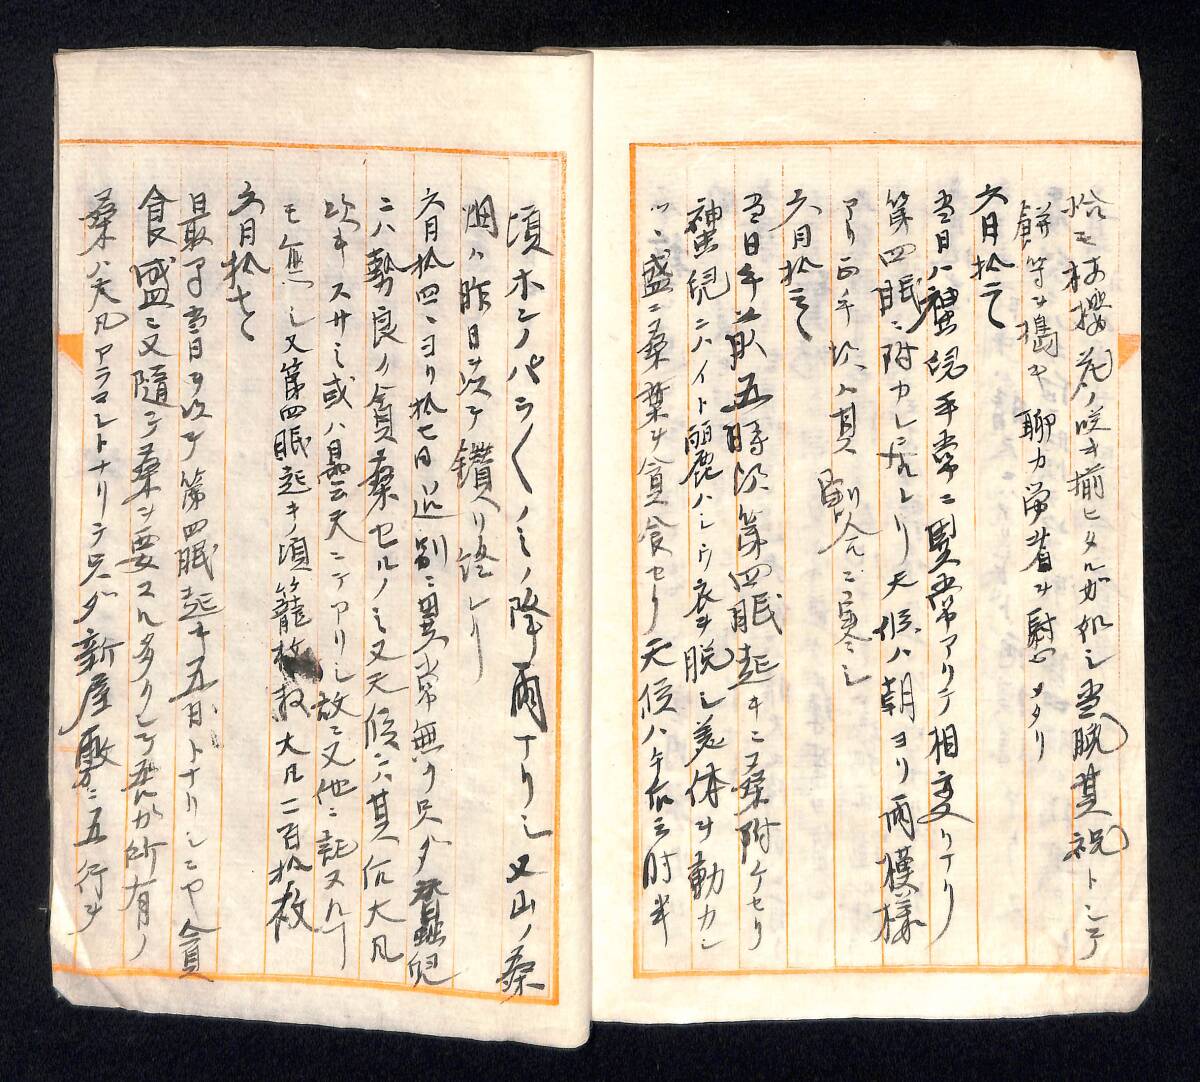 恰モ桜花ノ咲キ揃ヒタルガ如シ当晩其祝トシテ
餅等ヲ搗キ聊カ労者ヲ慰メタリ
六月拾二日
当日ハ蚕児平常ニ異常アリテ相変リナリ
第四眠ニ附カレ居レリ天候ハ朝ヨリ雨模様
アリ正午頃ハ其
六月拾三日
当日午前五時頃第四眠起キニ桑附ケセリ
蚕児ニハイト麗ハシウ衣ヲ脱シ美体ヲ動カシ
ツヽ盛ニ桑葉ヲ貪食セリ天候ハ午后三時半
頃ホンノパラ〱ノミノ降雨ナリシ又山ノ桑
畑ハ昨日ヲ以テ鑽入リ終レリ
六月拾四日ヨリ拾七日迄別ニ異常無ク只ダ蚕児
ニハ勢良ク貪桑セルノミ又天候ハ其后大凡
吹キスサミ或ハ曇天ニテアリシ故ニ又他ニ記スル
モ無シ又第四眠起キノ頃籠枚数大凡二百拾枚
六月拾七日
最早当日ヲ以テ第四眠起キ五日トナリシニヤ貪
食盛ニ又随テ桑ヲ要スル多クシテ吾が所有ノ
桑ハ大凡アラマシトナリテ只ダ新屋敷ニ五行ヲ